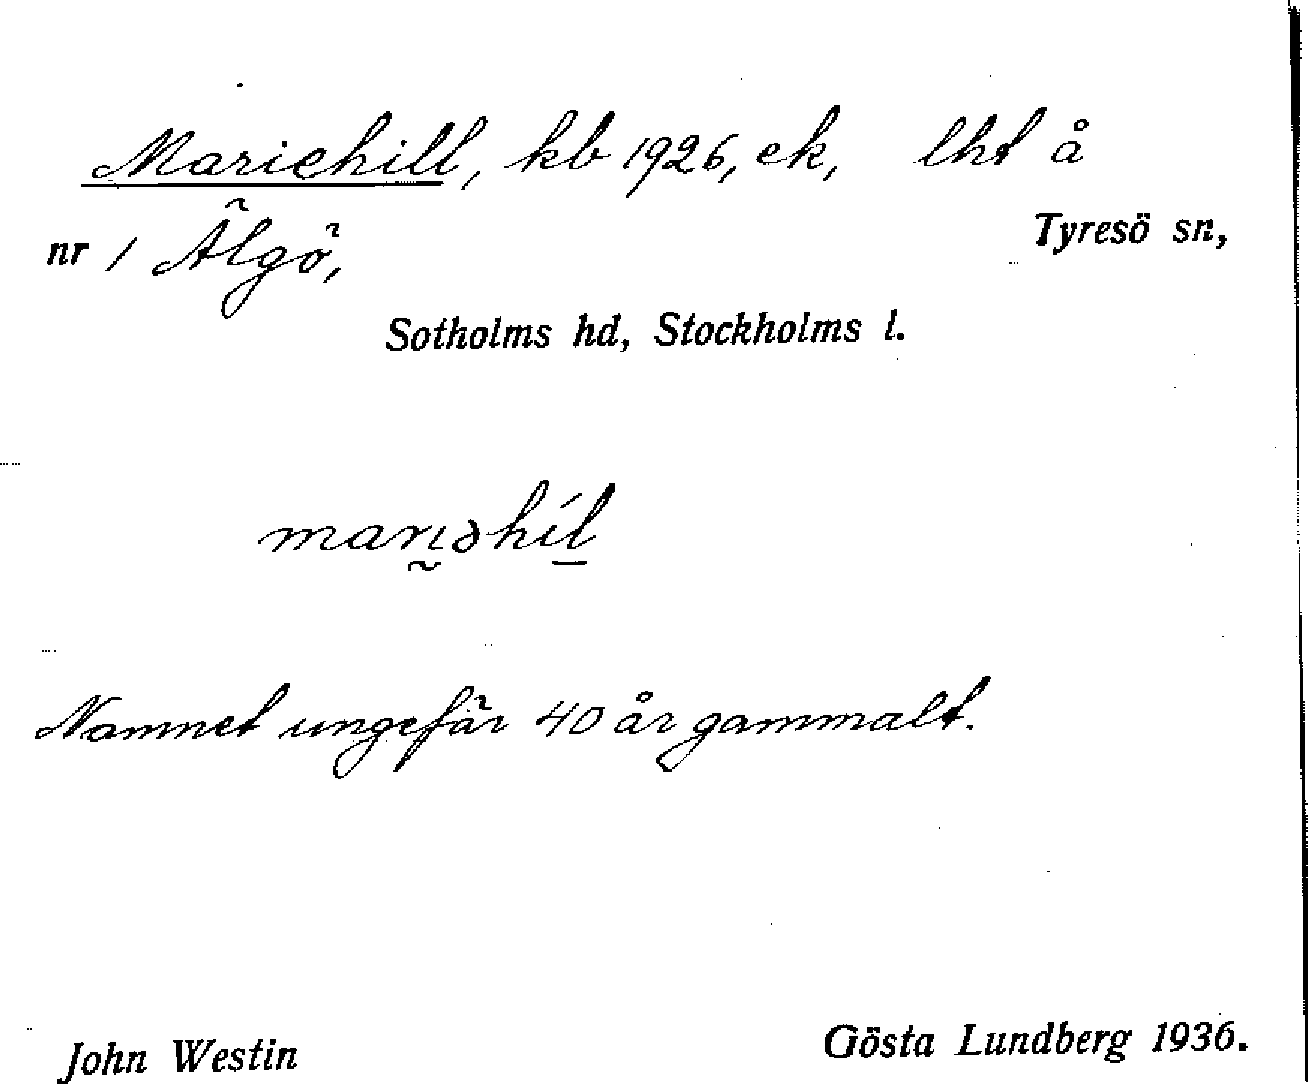 Mariehill, kb 1926, ek, lht å
nr 1 Älgö, Tyresö sn,
Sotholms hd, Stockholms l.
marı̰əhíl̲
Namnet ungefär 40 år gammalt.
John Westin Gösta Lundberg 1936.